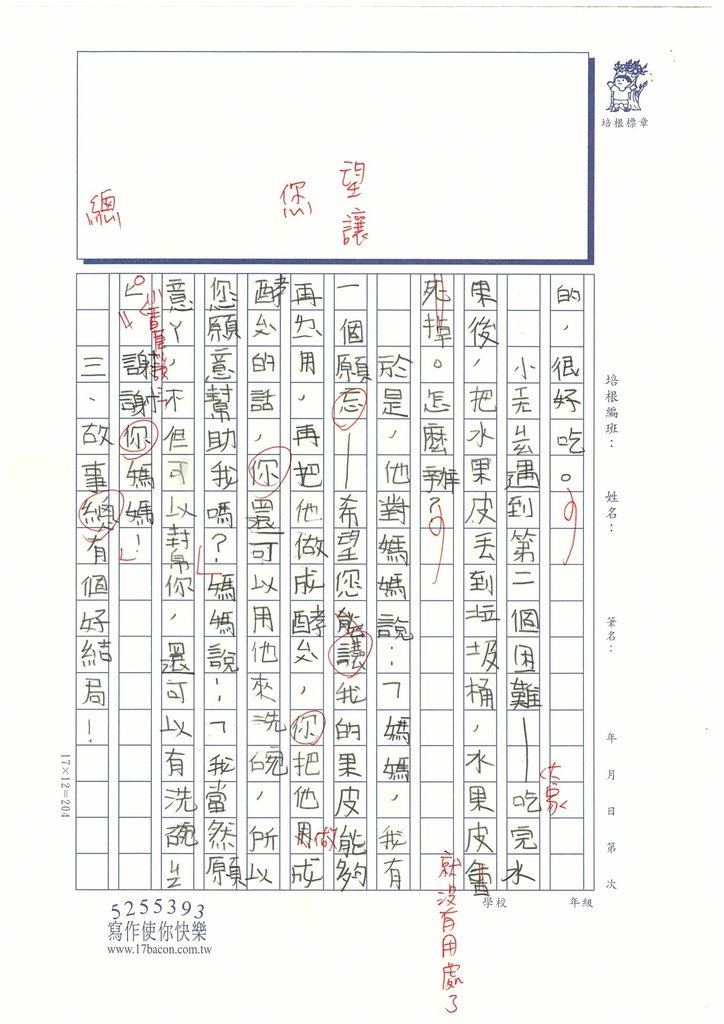 培根標章
培根編班：　姓名：　筆名：　年　月　日　第　次
學校　年級
望讓
您
總
的，很好吃。
小ㄊㄠㄊㄠ遇到第二個困難——吃完水
大家
果後，把水果皮丟到垃圾桶，水果皮會
死掉。怎麼辦？
就沒有用處了
於是，他對媽媽說：「媽媽，我有
一個願忘——希望您能議我的果皮能夠
再ㄌㄧˋ用，再把他做成酵ㄙㄨˋ，你把他用成
做
酵ㄙㄨˋ的話，你還可以用他來洗碗，所以
您願意幫助我嗎？媽媽說：「我當然願
意ㄚ，不但可以封幫你，還可以有洗碗ㄐㄧㄥ
」謝謝你媽媽！
三、故事總有個好結局！
17×12=204
5255393
寫作使你快樂
www.17bacon.com.tw